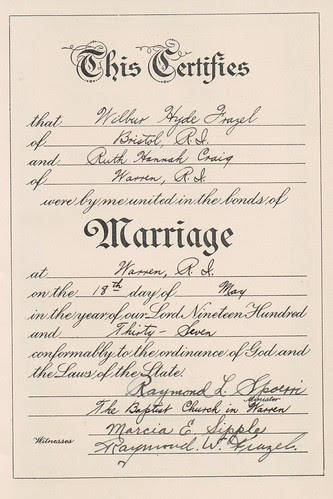 This Certifies
that Wilbur Hyde Frazel
of Bristol, R.I.
and Ruth Hannah Craig
of Warren, R.I.
were by me united in the bonds of
Marriage
at Warren, R.I.
on the 18th day of May
in the year of our Lord Nineteen Hundred
and Thirty-Seven
conformably to the ordinance of God and
the Laws of the State.
Raymond L. Spoerri
Minister
The Baptist Church in Warren
Marcia E. Sipple
Witnesses
Raymond W. Frazel.